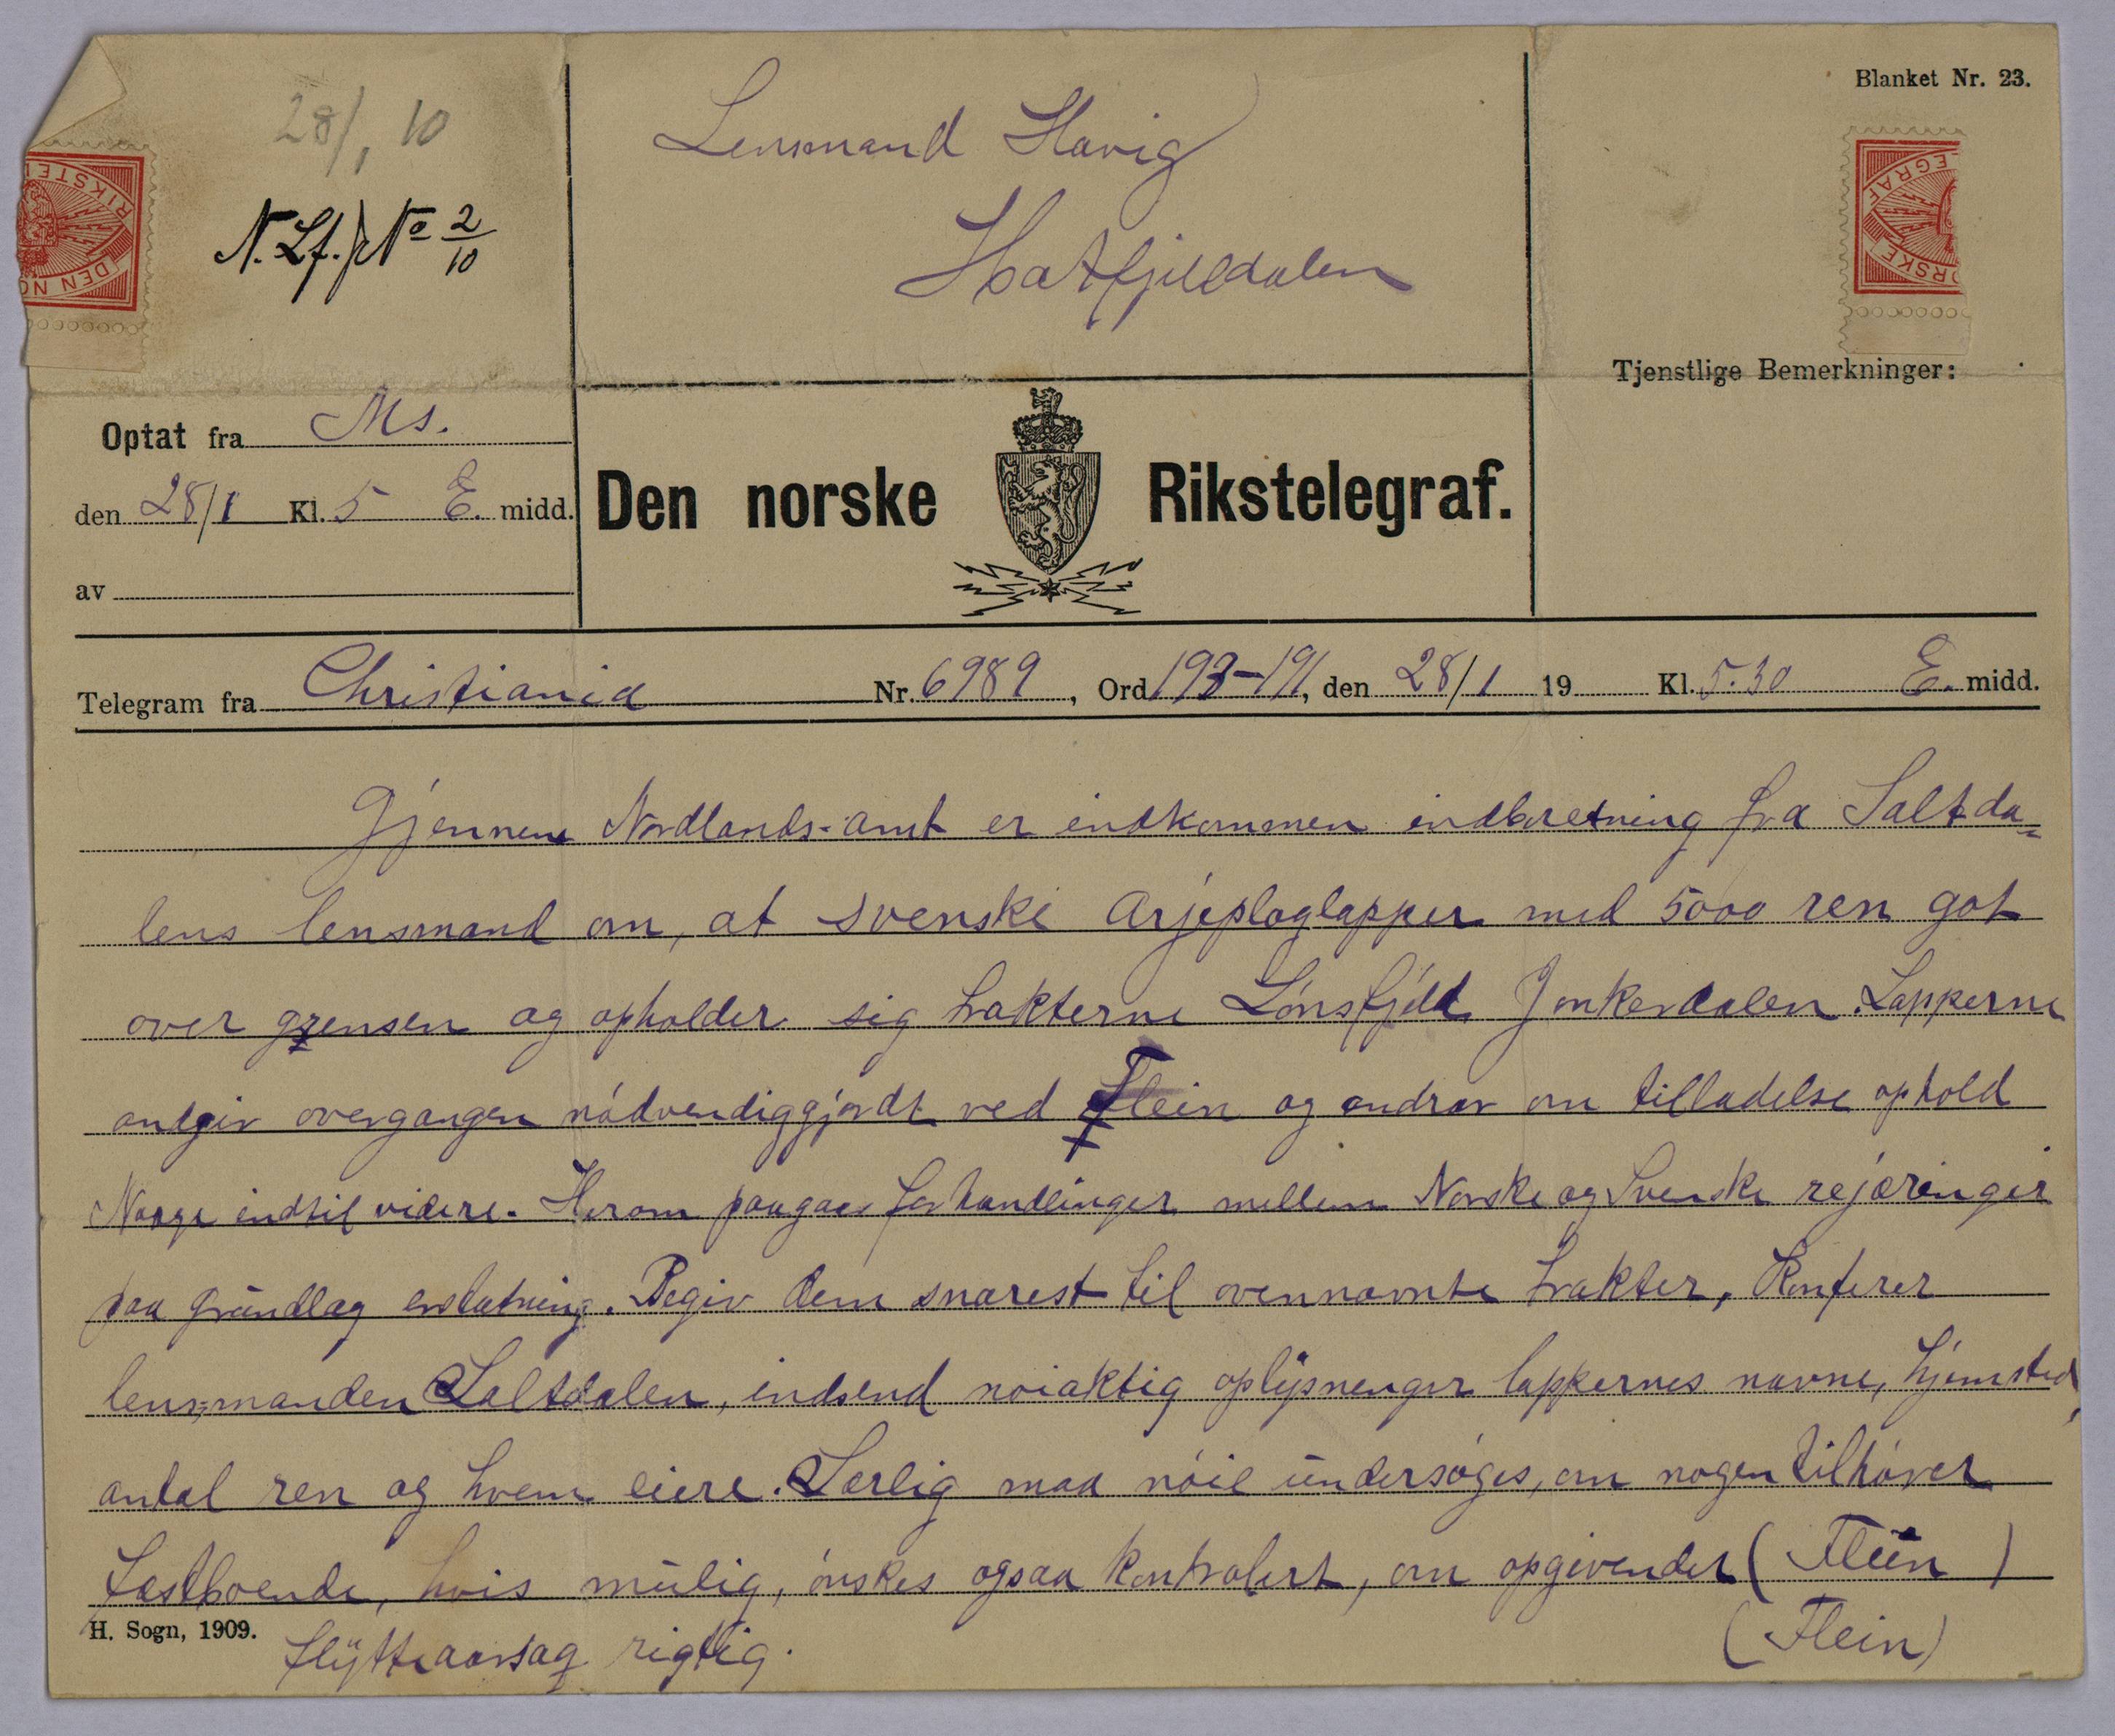 Blanket Nr. 23.
28/1 10
N. Lf. J No 2/10
Lensmand Havig
Hatfjelldalen
Tjenstlige Bemerkninger:
Optat fra Ms.
den 28/1 Kl. 5 E. midd.
av
Den norske Rikstelegraf.
Telegram fra Christiania Nr. 6989, Ord 193-191, den 28/1 19 Kl. 5.30 E. midd.
Gjennem Nordlands-amt er indkommen indberetning fra Saltda-
lens lensmand om, at svenske Arjeploglapper med 5000 ren gåt
over grensen og opholder sig trakterne Lónsfjeld Junkerdalen. Lapperne
andgir overgangen nódvendiggjordt ved Flein og andrar om tilladelse ophold
Norge indtil videre. Herom paagaar forhandlinger mellem Norske og Svenske rejæringer
paa grundlag erstatning. Begiv dem snarest til ovennævnte trakter, Konferer
lensmanden Saltdalen, indsend nóiaktig oplysnenger lappernes navne, hjemsted,
antal ren og hvem eiere. Særlig maa nóie undersóges, om nogen tilhórer
fastboende, hvis mulig, ónskes ogsaa kontrolert, om opgivendes (Flein)
H. Sogn, 1909.
flytteaarsag rigtig.
(Flein)